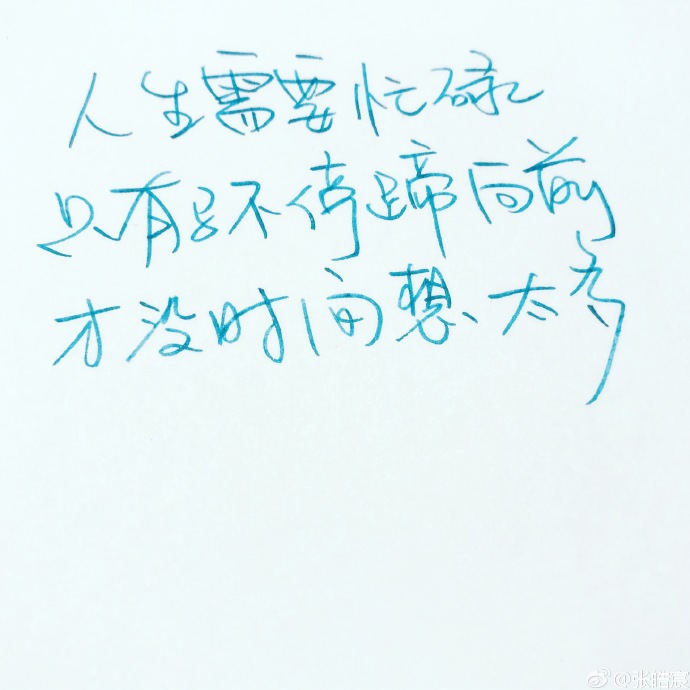 人生需要忙碌
只有马不停蹄向前
才没时间想太多
@张皓濠